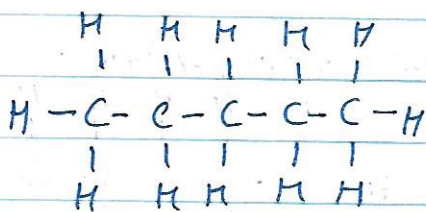 H H H H H
H - C - C - C - C - C - H
H H H H H